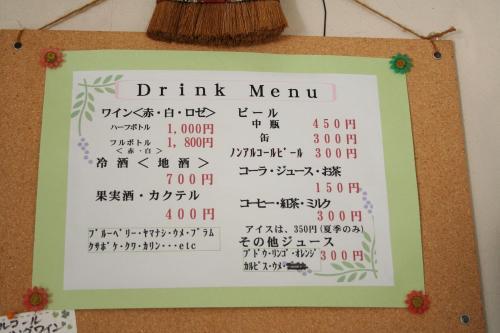 Drink Menu
ワイン<赤・白・ロゼ>
ハーフボトル 1,000円
フルボトル 1,800円
<赤・白>
冷酒<地酒>
700円
果実酒・カクテル
400円
ブルーベリー・ヤマナシ・ウメ・プラム
クサボケ・クワ・カリン・・・etc
ビール
中瓶 450円
缶 300円
ノンアルコールビール 300円
コーラ・ジュース・お茶
150円
コーヒー・紅茶・ミルク
300円
アイスは、350円(夏季のみ)
その他ジュース
ブドウ・リンゴ・オレンジ 300円
カルピス・ウメ・
ルコール
ワイン